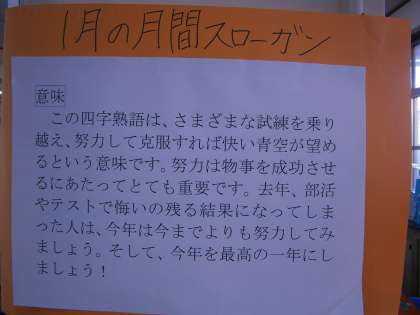 1月の月間スローガン
意味
この四字熟語は、さまざまな試練を乗り
越え、努力して克服すれば快い青空が望め
るという意味です。努力は物事を成功させ
るにあたってとても重要です。去年、部活
やテストで悔いの残る結果になってしま
った人は、今年は今までよりも努力してみ
ましょう。そして、今年を最高の一年にし
ましょう！